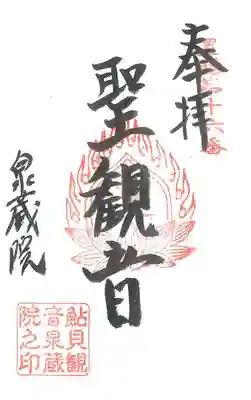 奉拝
聖観音
泉蔵院
鮎貝観
音泉蔵
院之印